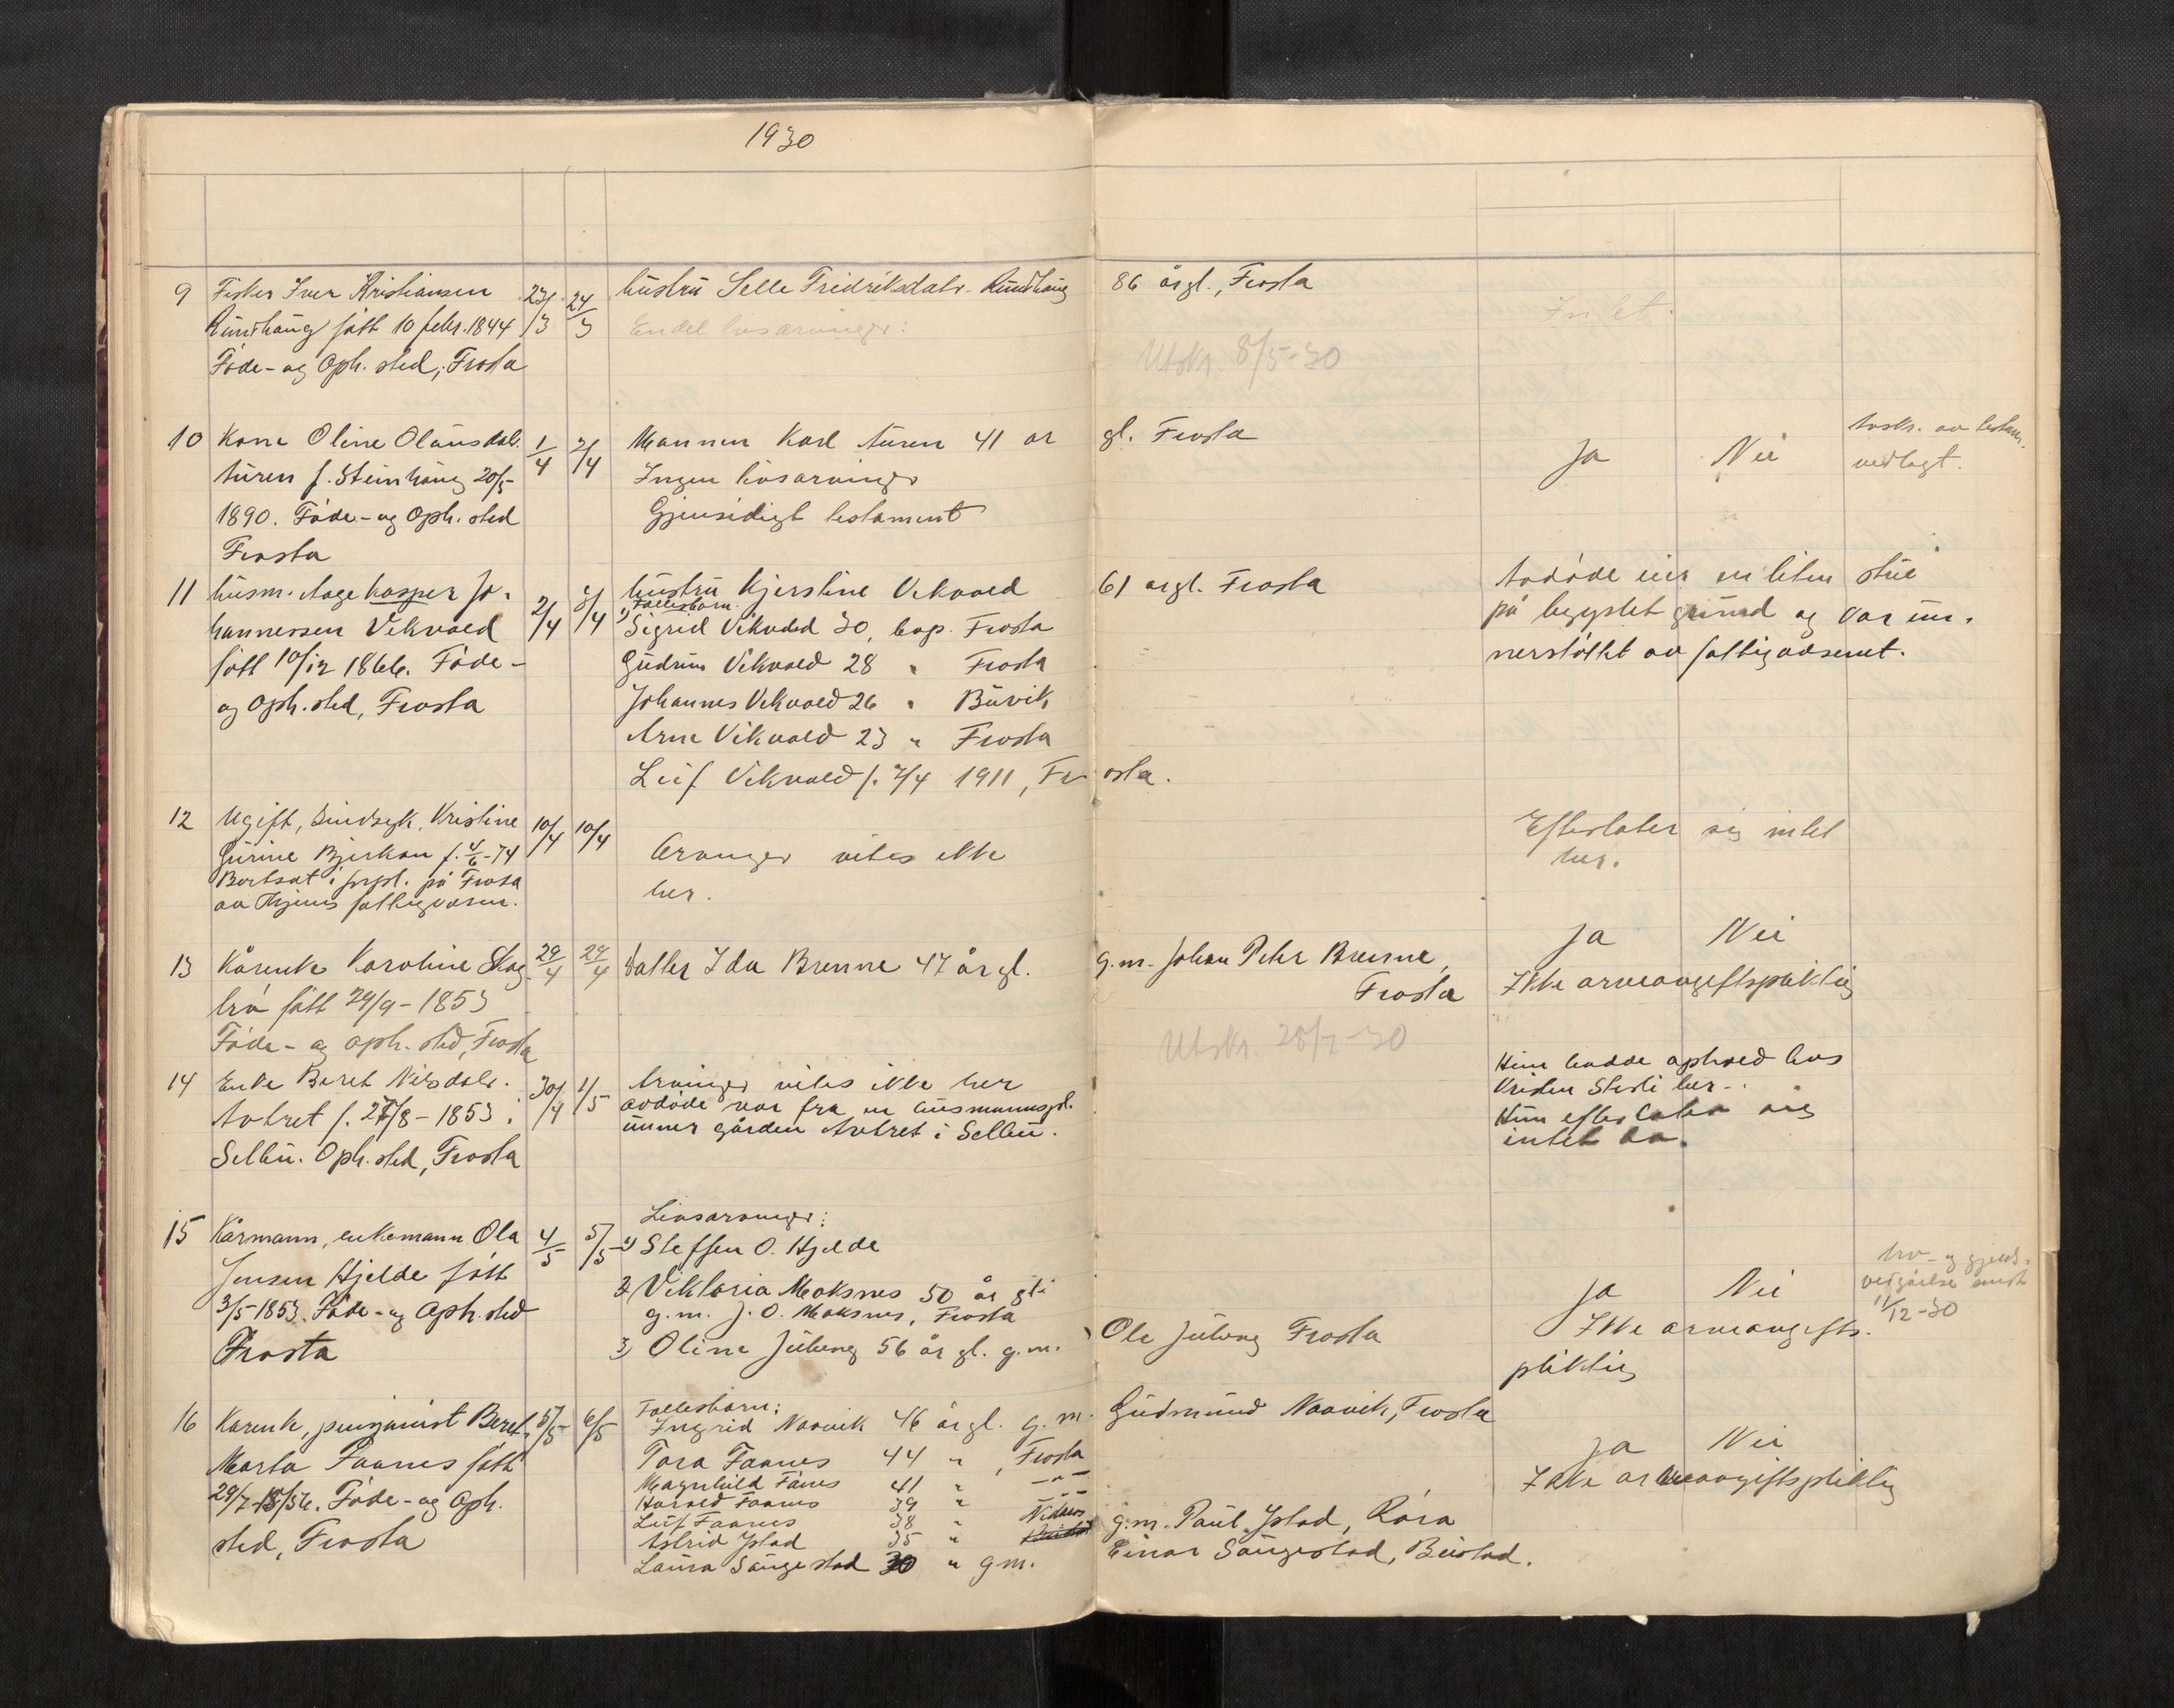 1930
9 Fisker Iver Kristiansen 23/3 24/3 hustru Selle Fredriksdatr. Rundhaug 86 årgl., Frosta
Rundhaug født 10 febr. 1844 Endel livsarvinger: Intet.
Føde- og Oph. sted, Frosta Utskr. 8/5-30
10 Kone Oline Olausdatr. 1/4 2/4 Mannen Karl Auren 41 år gl. Frosta Ja Nei avskr. av testam.
Auren f. Steinhaug 20/5- Ingen livsarvinger vedlagt.
1890. Føde- og Oph. sted Gjensidigt testament
Frosta
11 husm. Aage Kasper Jo- 2/4 5/4 hustru Kjerstine Vikvold 61 årgl. Frosta Avdøde eier en liten stue
Fællesbarn.
hannessen Vikvold 1) Sigrid Vikvold 30, bop. Frosta på bygslet grund og var un-
født 10/12 1866. Føde- Gudrun Vikvold 28 " Frosta nerstøttet av fattigvæsenet.
og Oph. sted, Frosta Johannes Vikvold 26 " Buvik
Arne Vikvold 23 " Frosta
Leif Vikvold f. 7/4 1911, Frosta.
12 Ugift, sindsyk, Kristine 10/4 10/4 Efterlater sig intet
Gurine Bjerkan f. 4/6-74 Arvinger vites ikke her.
Bortsat i forpl. på Frosta her.
av fattigvæsen.
13 Kårenke Karoline Skog- 29/4 29/4 datter Ida Brenne 47 årgl. g.m. Johan Peter Brenne, Ja Nei
født 29/9-1853 Frosta Ikke arveavgiftspliktig
Føde- og oph. sted, Frosta Utskr. 28/7-30
14 Enke Beret Nilsdatr. 30/4 1/5 Arvinger vites ikke her Hun hadde ophold hos
Avbret f. 27/8-1853 i avdøde var fra en husmannspl. her.
Selbu. Oph. sted, Frosta unner gården Avbret i Selbu. Hun efterlater sig
intet
15 Kårmann, enkemann Ola 4/5 5/5 Livsarvinger:
Jensen Hjelde født 1) Steffen O. Hjelde
3/5-1853. Føde- og Oph. sted 2) Viktoria Moksnes 50 år gl. Ja Nei arv- og gjelds-
Frosta g.m. J. O. Moksnes, Frosta Ikke arveavgifts- vedgåelse sendt
3) Oline Juberg 56 år gl. g.m. Ole Juberg Frosta pliktig 11/12-30
16 Kårenke, pensjonist Beret- 5/5 6/5 Fællesbarn:
Marta Faanes født Ingrid Naavik 46 årgl. g.m. Gudmund Naavik, Frosta
29/7-1856. Føde- og Oph. Tora Faanes 44 " , Frosta Ja Nei
sted, Frosta Magnhild Fånes 41 " -"- Ikke arveavgiftspliktig
Harald Faanes 39 " -"-
Leif Faanes 38 " Nidaros
Astrid Ystad 35 " g.m. Paul Ystad, Røra
Laura Saugestad 30 " gm. Einar Saugestad, Beistad.